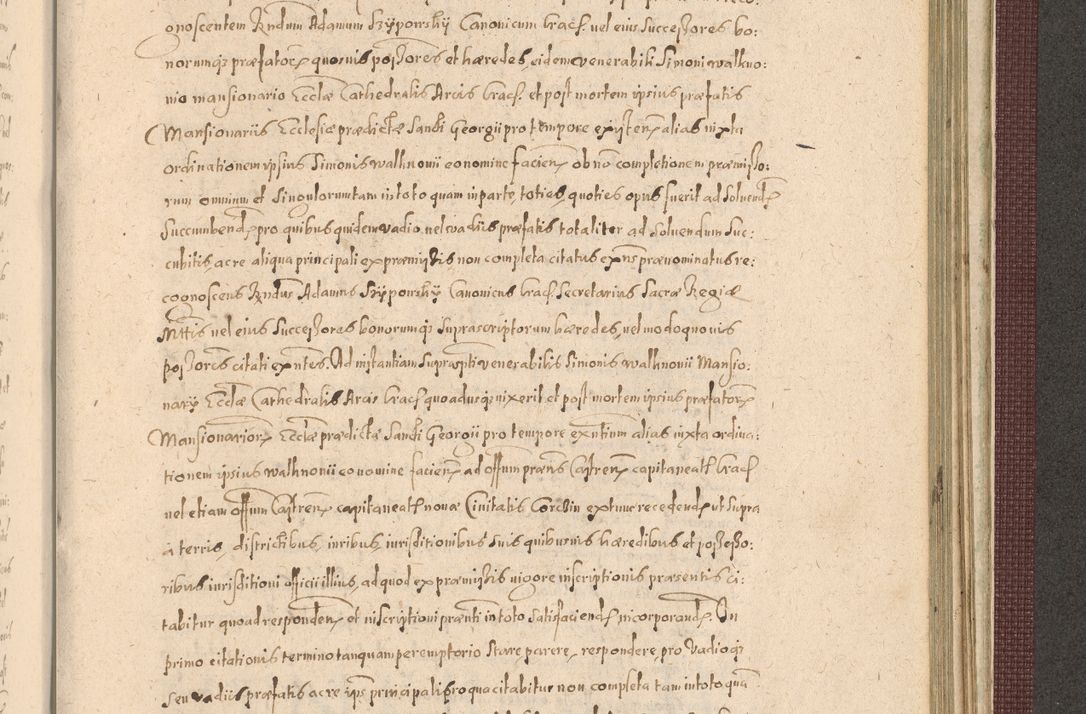 onoscentem Rndum Adamum Szÿpowskÿ Canonicum Cracſ. vel eius Successores bo:
norumq; præfator. quosuis possores et hæredes, eidem venerabili Simoni walkno:
nio mansionario Eccłæ Cathedralis Arcis Cracſ. et post mortem ipsius præfatis
Mansionariis Ecclesiæ prædictæ Sancti Georgii pro tempore existen. alias iuxta
ordinationem ipsius Simonis walknowii eo nomine facien. ob non completionem præmisso:
rum omnium et Singulorum tam in toto quam in parte, toties, quoties opus fuerit ad Soluend.
Succumbend. pro quibus quidem vadio vel vadiis præfatis totaliter ad Soluendum Suc:
cubitis, ac re aliqua principali ex præmissis, non completa citatus exns prænominatus re:
cognoscens Rndus Adamus Szÿpowskÿ Canonicus Cracſ. Secretarius Sacræ Regiæ
Mttis vel eius Successores bonorumq; Suprascriptorum hæredes, vel modo quouis
possores citati exntes. Ad instantiam Supraspti venerabilis Simonis walknowii Mansio:
narÿ Eccłæ Cathedralis Arcis Cracſ quoadusq; vixerit et post mortem ipsius præfator.
Mansionarior. Eccłæ prædictæ Sancti Georgii pro tempore exntium alias iuxta ordina:
tionem ipsius walknonii eo nomine facien. ad offum præns Castren. capitaneatſ Cracſ
vel etiam offum Castren. capitaneatſ nouæ Ciuitatis Corczin extunc recedend. ut Supra
à terris, districtibus, iuribus, iurisditionibus Suis quibusuis hæredibus et possesso:
ribus iurisditioni officii illius, ad quod ex præmissis uigore inscriptionis præsentis ci:
tabitur quoad responden. et inscriptioni prænti in toto Satisfaciend. incorporand. In
primo citationis termino tanquam peremptorio Stare, parere, respondere, pro Vadioq;
Seu vadiis præfatis ac re ips principali pro qua citabitur non completa tam in toto quā